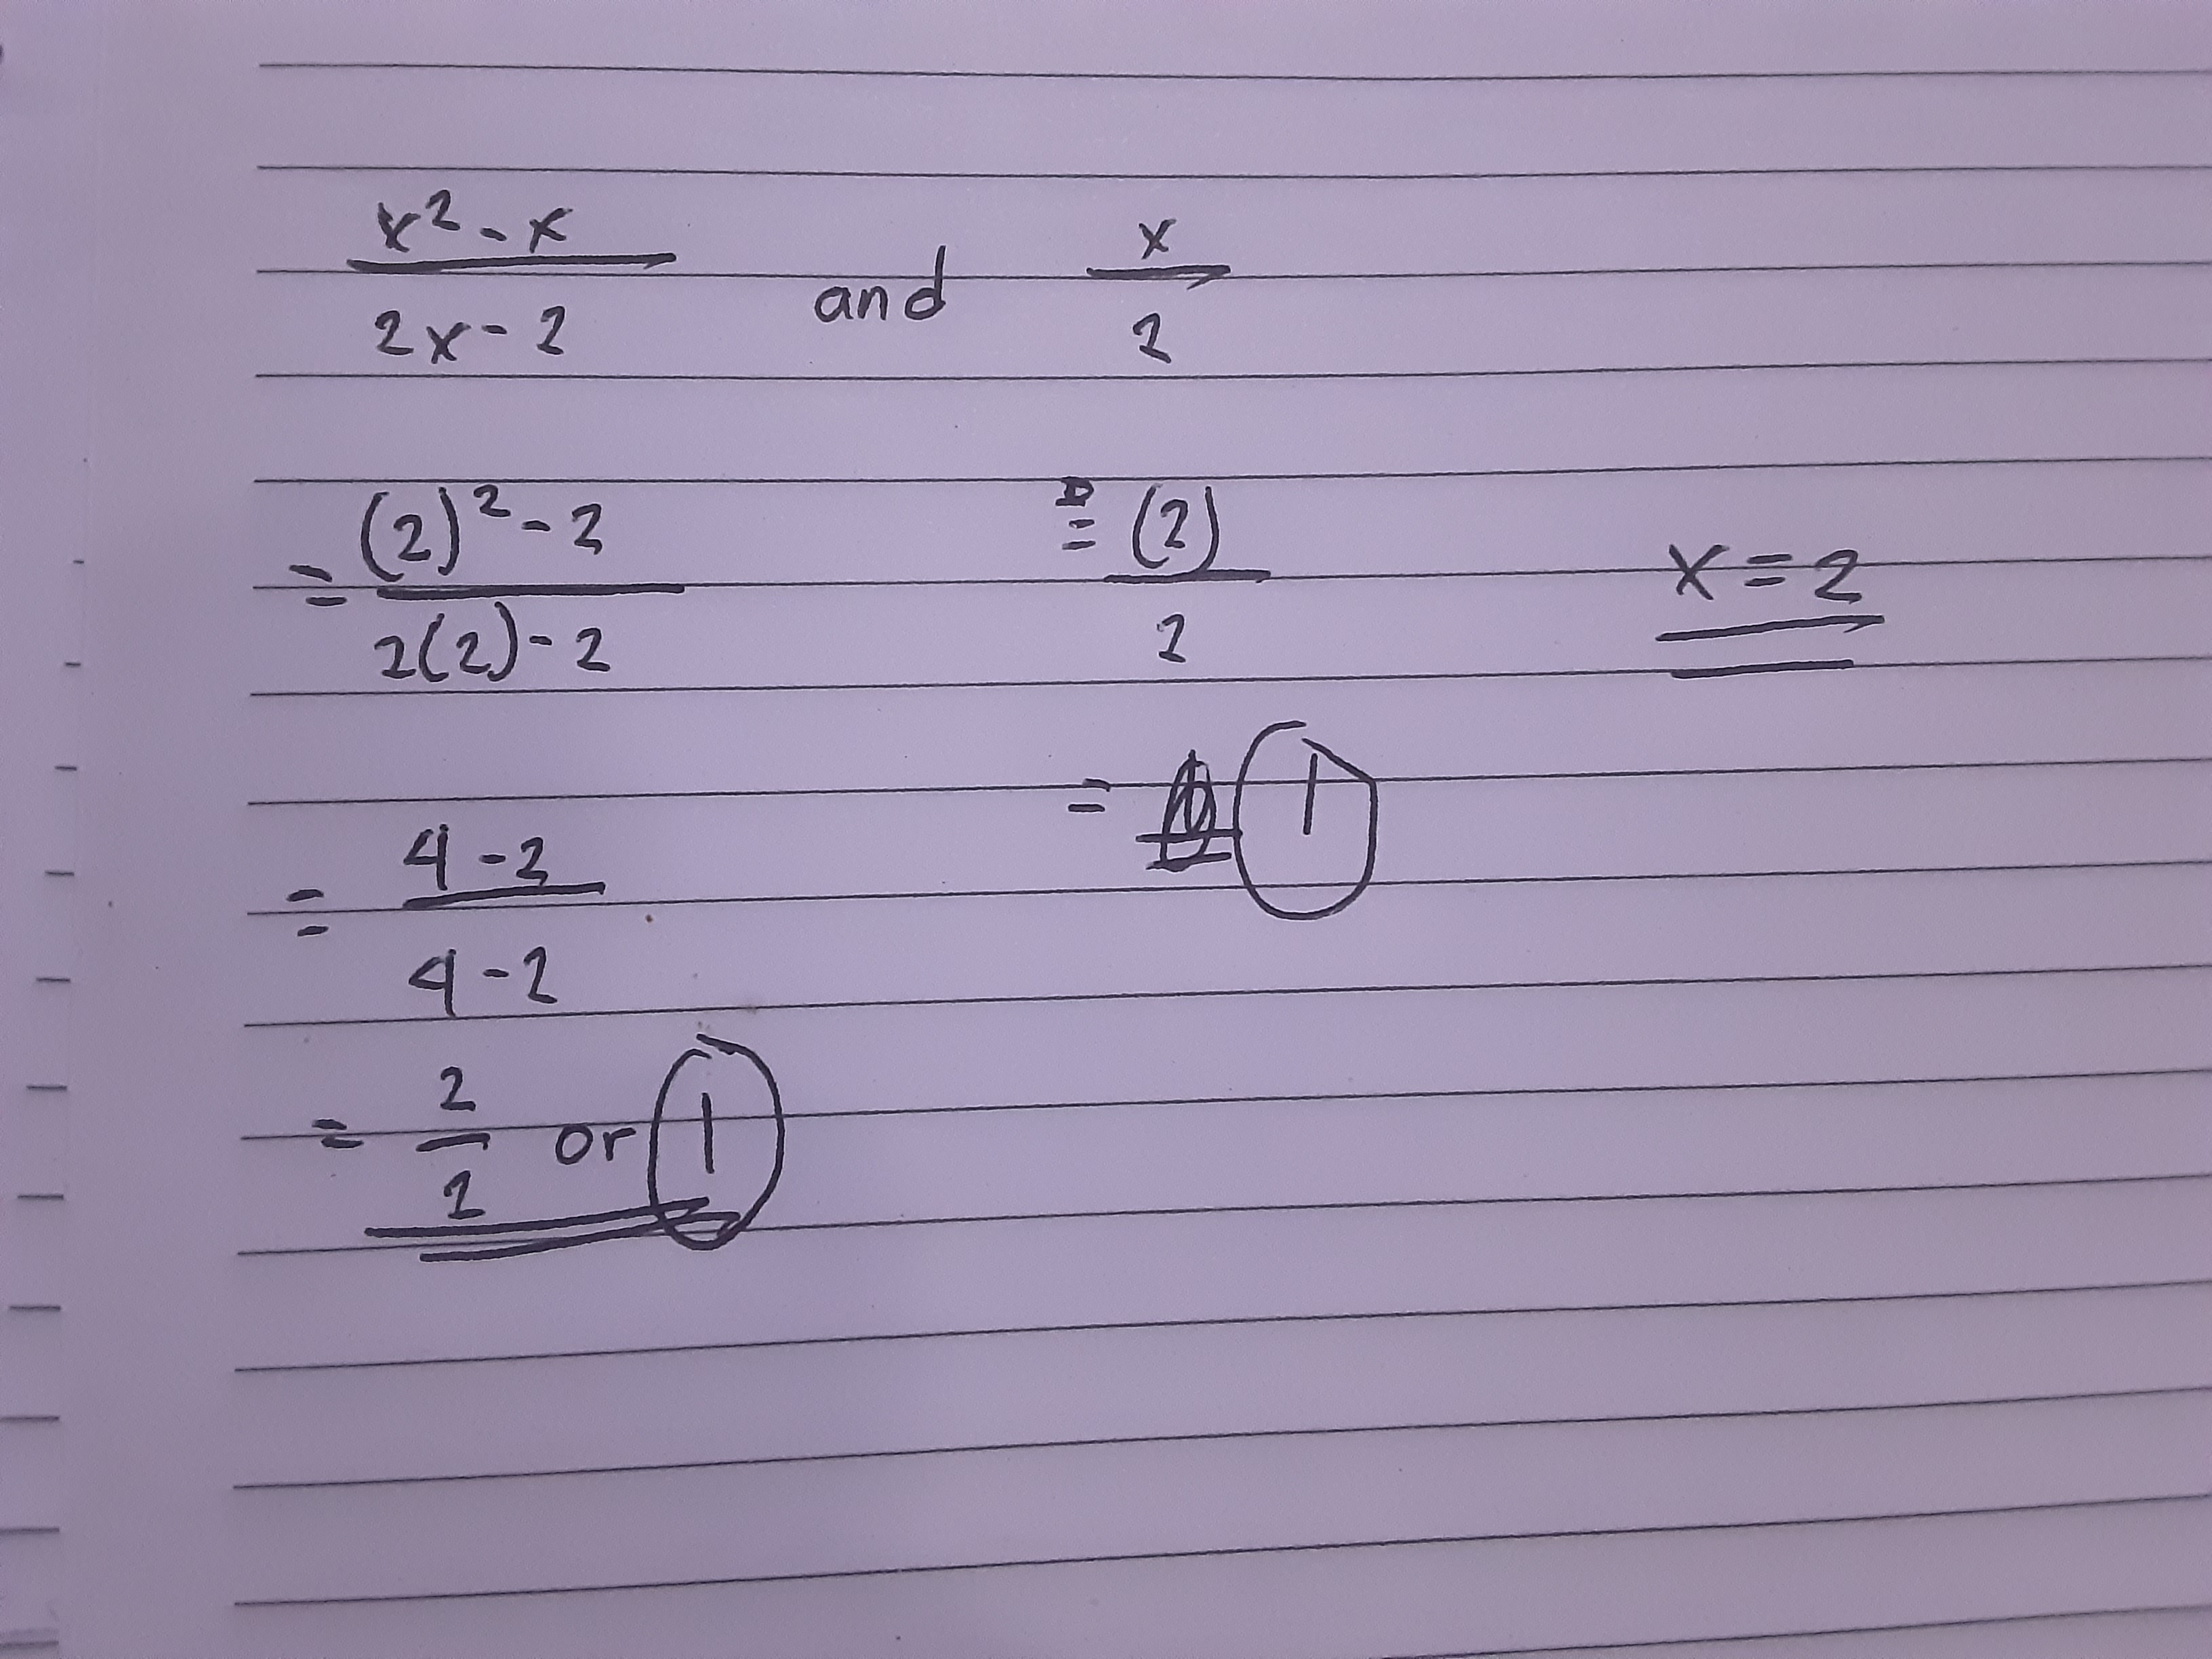 x² - x / 2x - 2 and x / 2
= (2)² - 2 / 2(2) - 2 = (2) / 2 x = 2
= 1
= 4 - 2 / 4 - 2
= 2 / 2 or 1